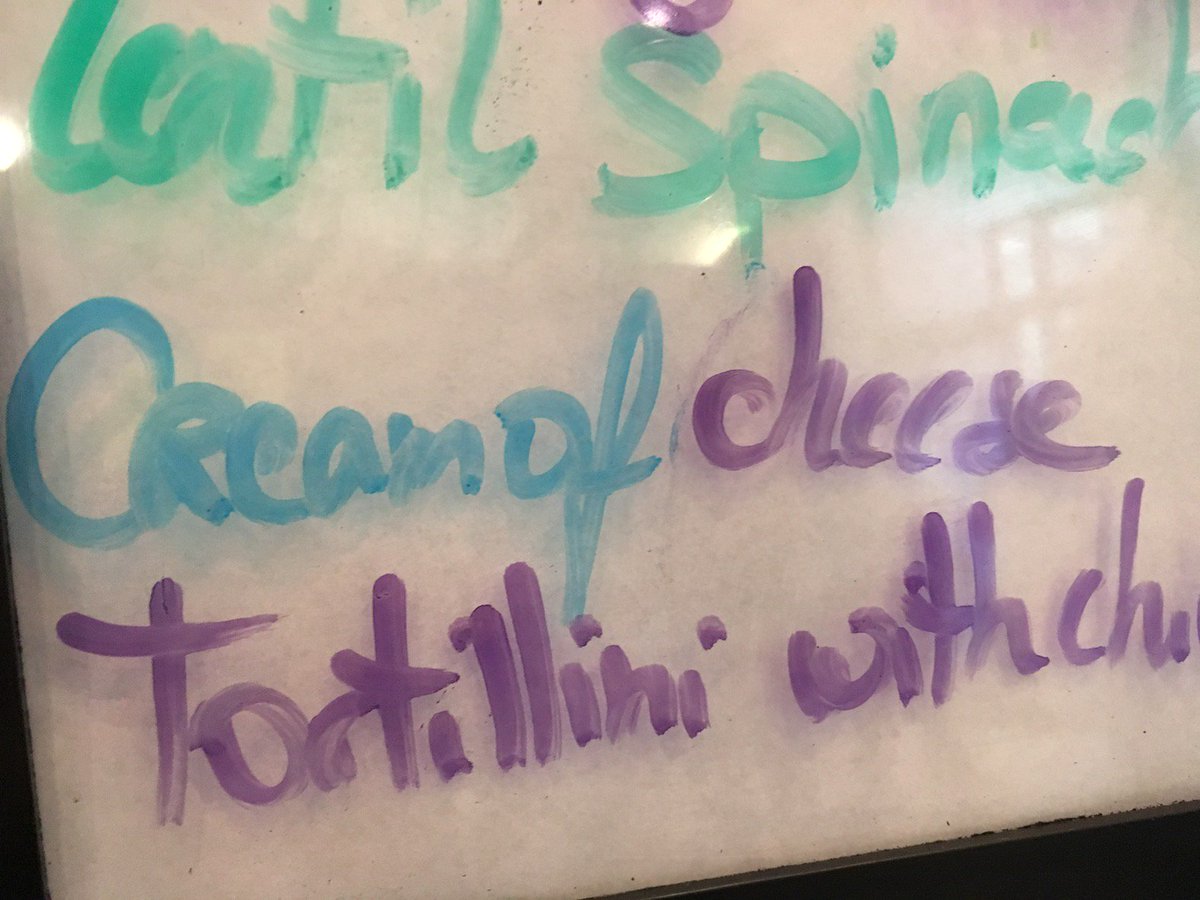 Lentil Spinach
Cream of cheese
Tortillini with